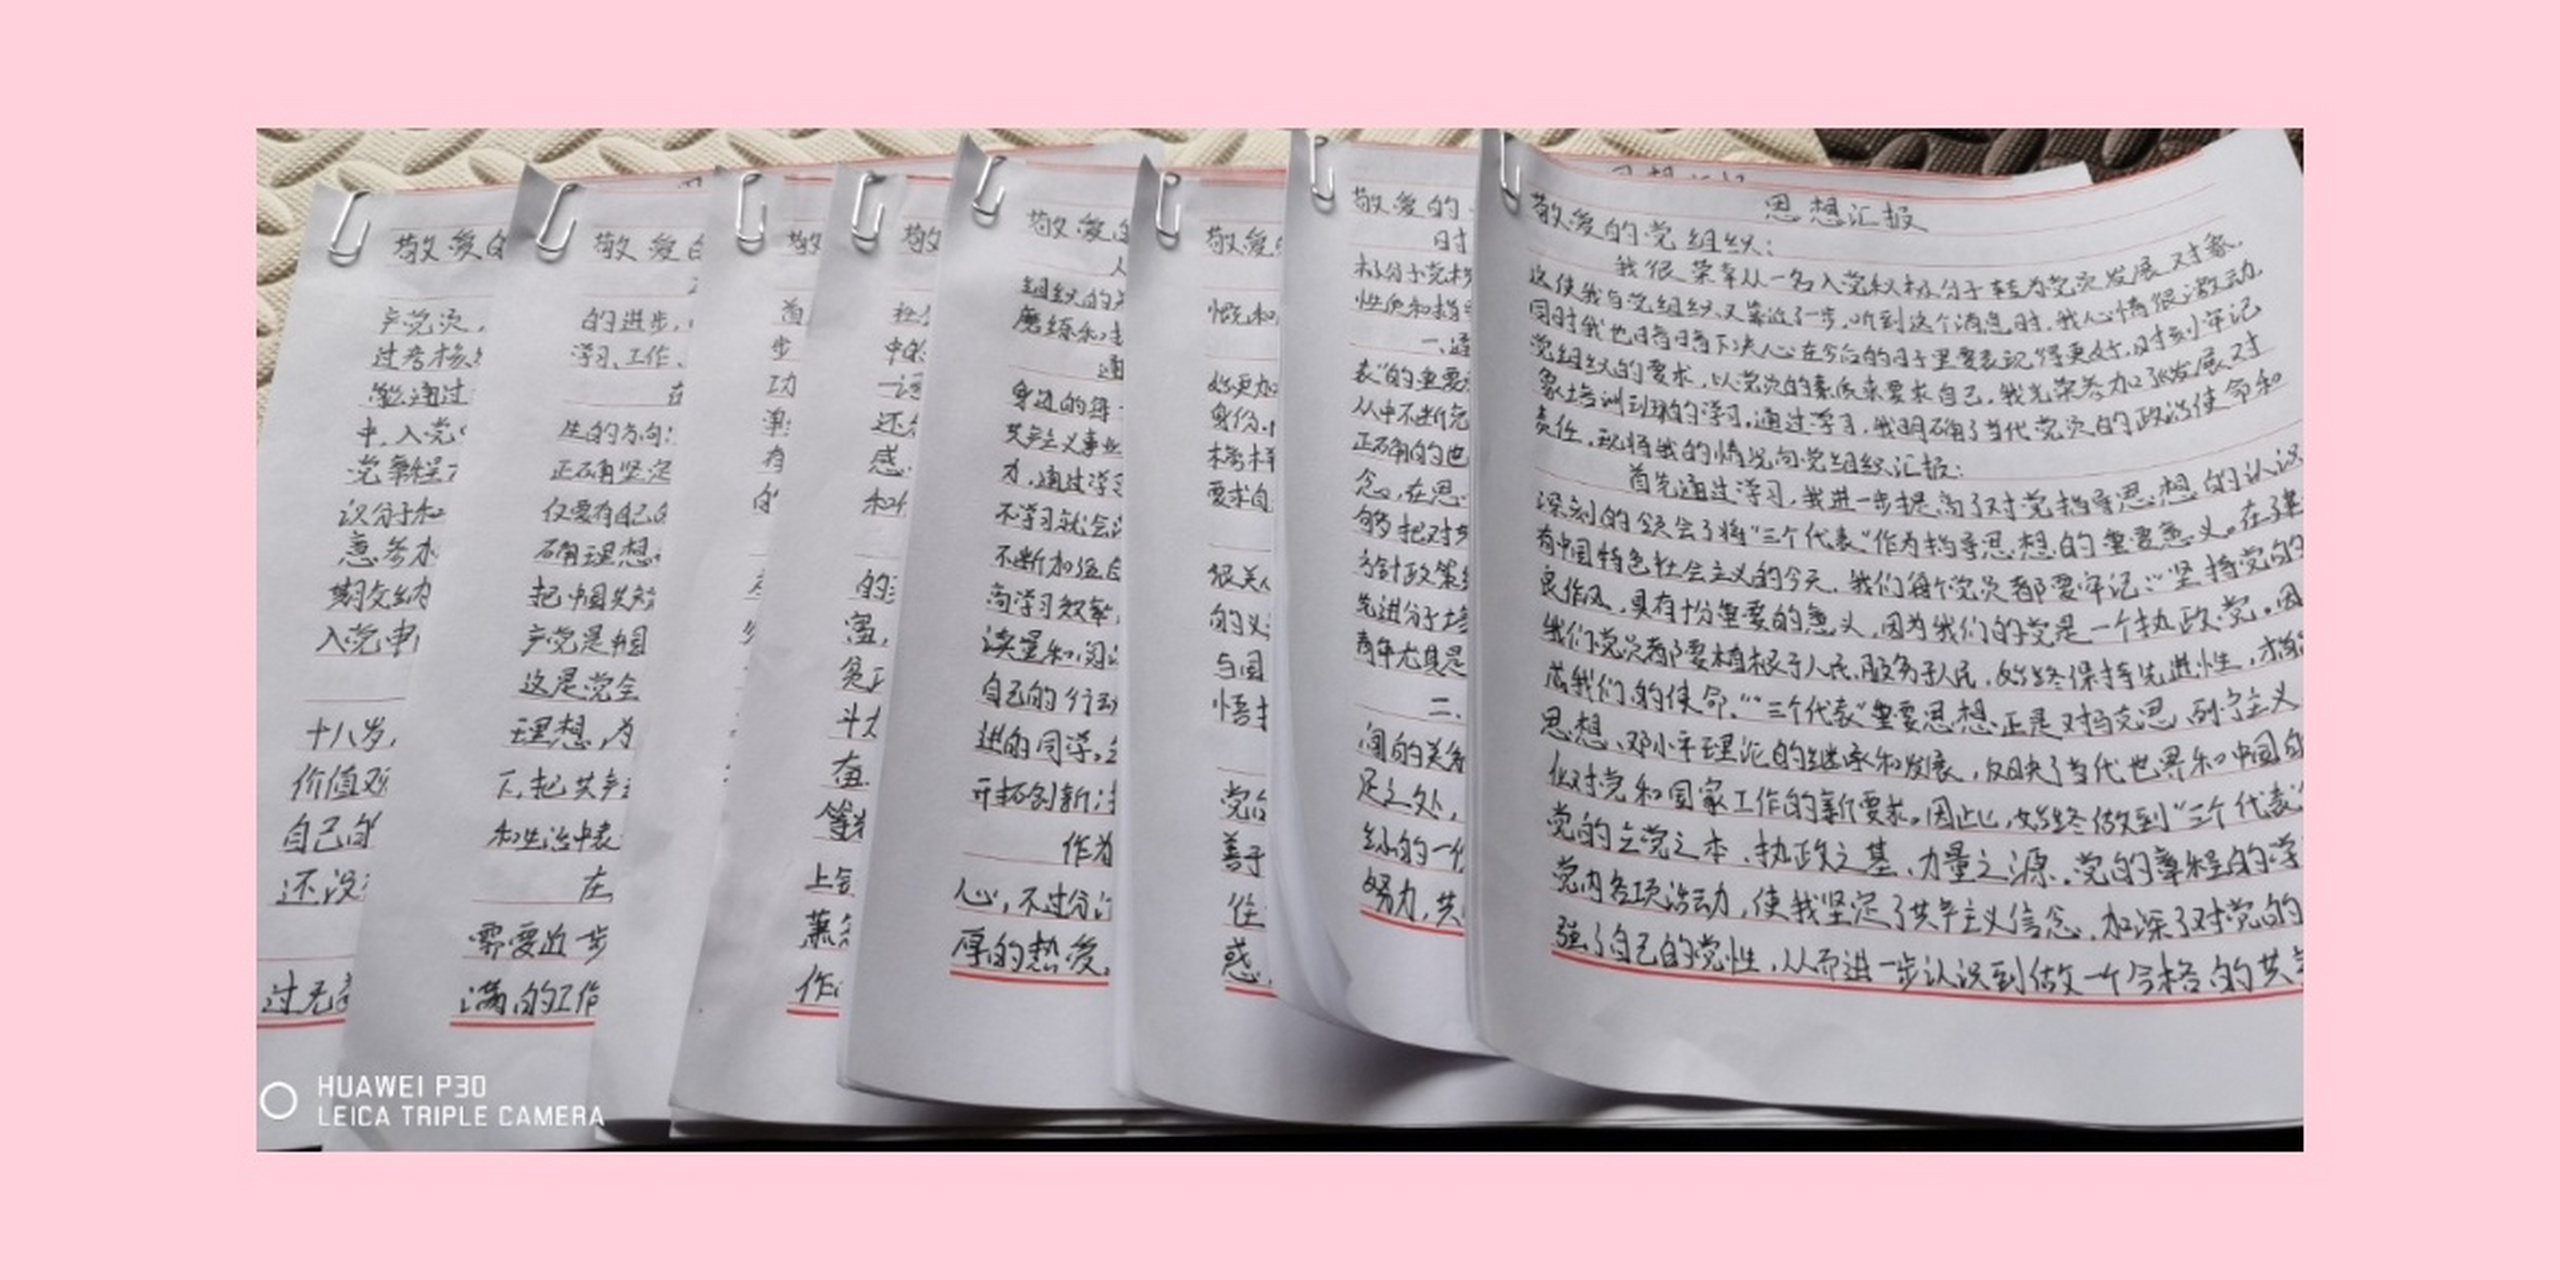 敬爱的
产党员,
过考核
激通过
中,入党
党章程
识分子和
意参加
期交纳
入党申
十八岁,
价值观
自己的
还没
过无
敬爱的
的进步,
学习、工作、
在
生的方向:
正确坚定
仅要有自己
确理想
把中国共
产党是中国
这是党全
理想,为
下,把共产
和生活中表
在
需要进步
满的工作
敬
首
步
功
有
的
敬
社
中的
一词
还
感
和
的
富,
贫
斗
奋
等
上
作
敬爱的
人
组织的
磨练和
通
身边的每一
共产主义事业
力,通过学习
不学习就会
不断加强自
高学习效率,
读量和阅
自己的行动
进的同学,
开拓创新
作为
心,不过分
厚的热爱,
敬爱
慨和
能更加
身份,
榜样
要求自
很美
的义
与国
悟
党的
善于
住
惑,
敬爱的
时
极分子党校
性质和指导
一、通
表”的重要
从中不断充
正确的世
念。在思
够把对
方针政策
先进分子
青年尤其是
二、
间的关系
足之处,
努力,共
思想汇报
敬爱的党组织:
我很荣幸从一名入党积极分子转为党员发展对象,
这使我与党组织又靠近了一步,听到这个消息时,我心情很激动,
同时我也暗暗下决心在今后的日子里要表现得更好,时刻牢记
党组织的要求,以党员的素质来要求自己,我光荣参加了以发展对
象培训班的学习,通过学习,我明确了当代党员的政治使命和
责任,现将我的情况向党组织汇报:
首先通过学习,我进一步提高了对党指导思想的认识
深刻的领会了将“三个代表”作为指导思想的重要意义。在建
有中国特色社会主义的今天,我们每个党员都要牢记:“坚持党的
良作风,具有十分重要的意义,因为我们的党是一个执政党。因
我们党员都要植根于人民,服务于人民,始终保持先进性,才
成我们的使命,“三个代表”重要思想正是对马克思、列宁主义
思想、邓小平理论的继承和发展,反映了当代世界和中国的
化对党和国家工作的新要求。因此,始终做到“三个代表”
党的立党之本、执政之基、力量之源,党的章程的学
党内各项活动,使我坚定了共产主义信念,加深了对党的
强了自己的党性,从而进一步认识到做一个合格的共
HUAWEI P30
LEICA TRIPLE CAMERA